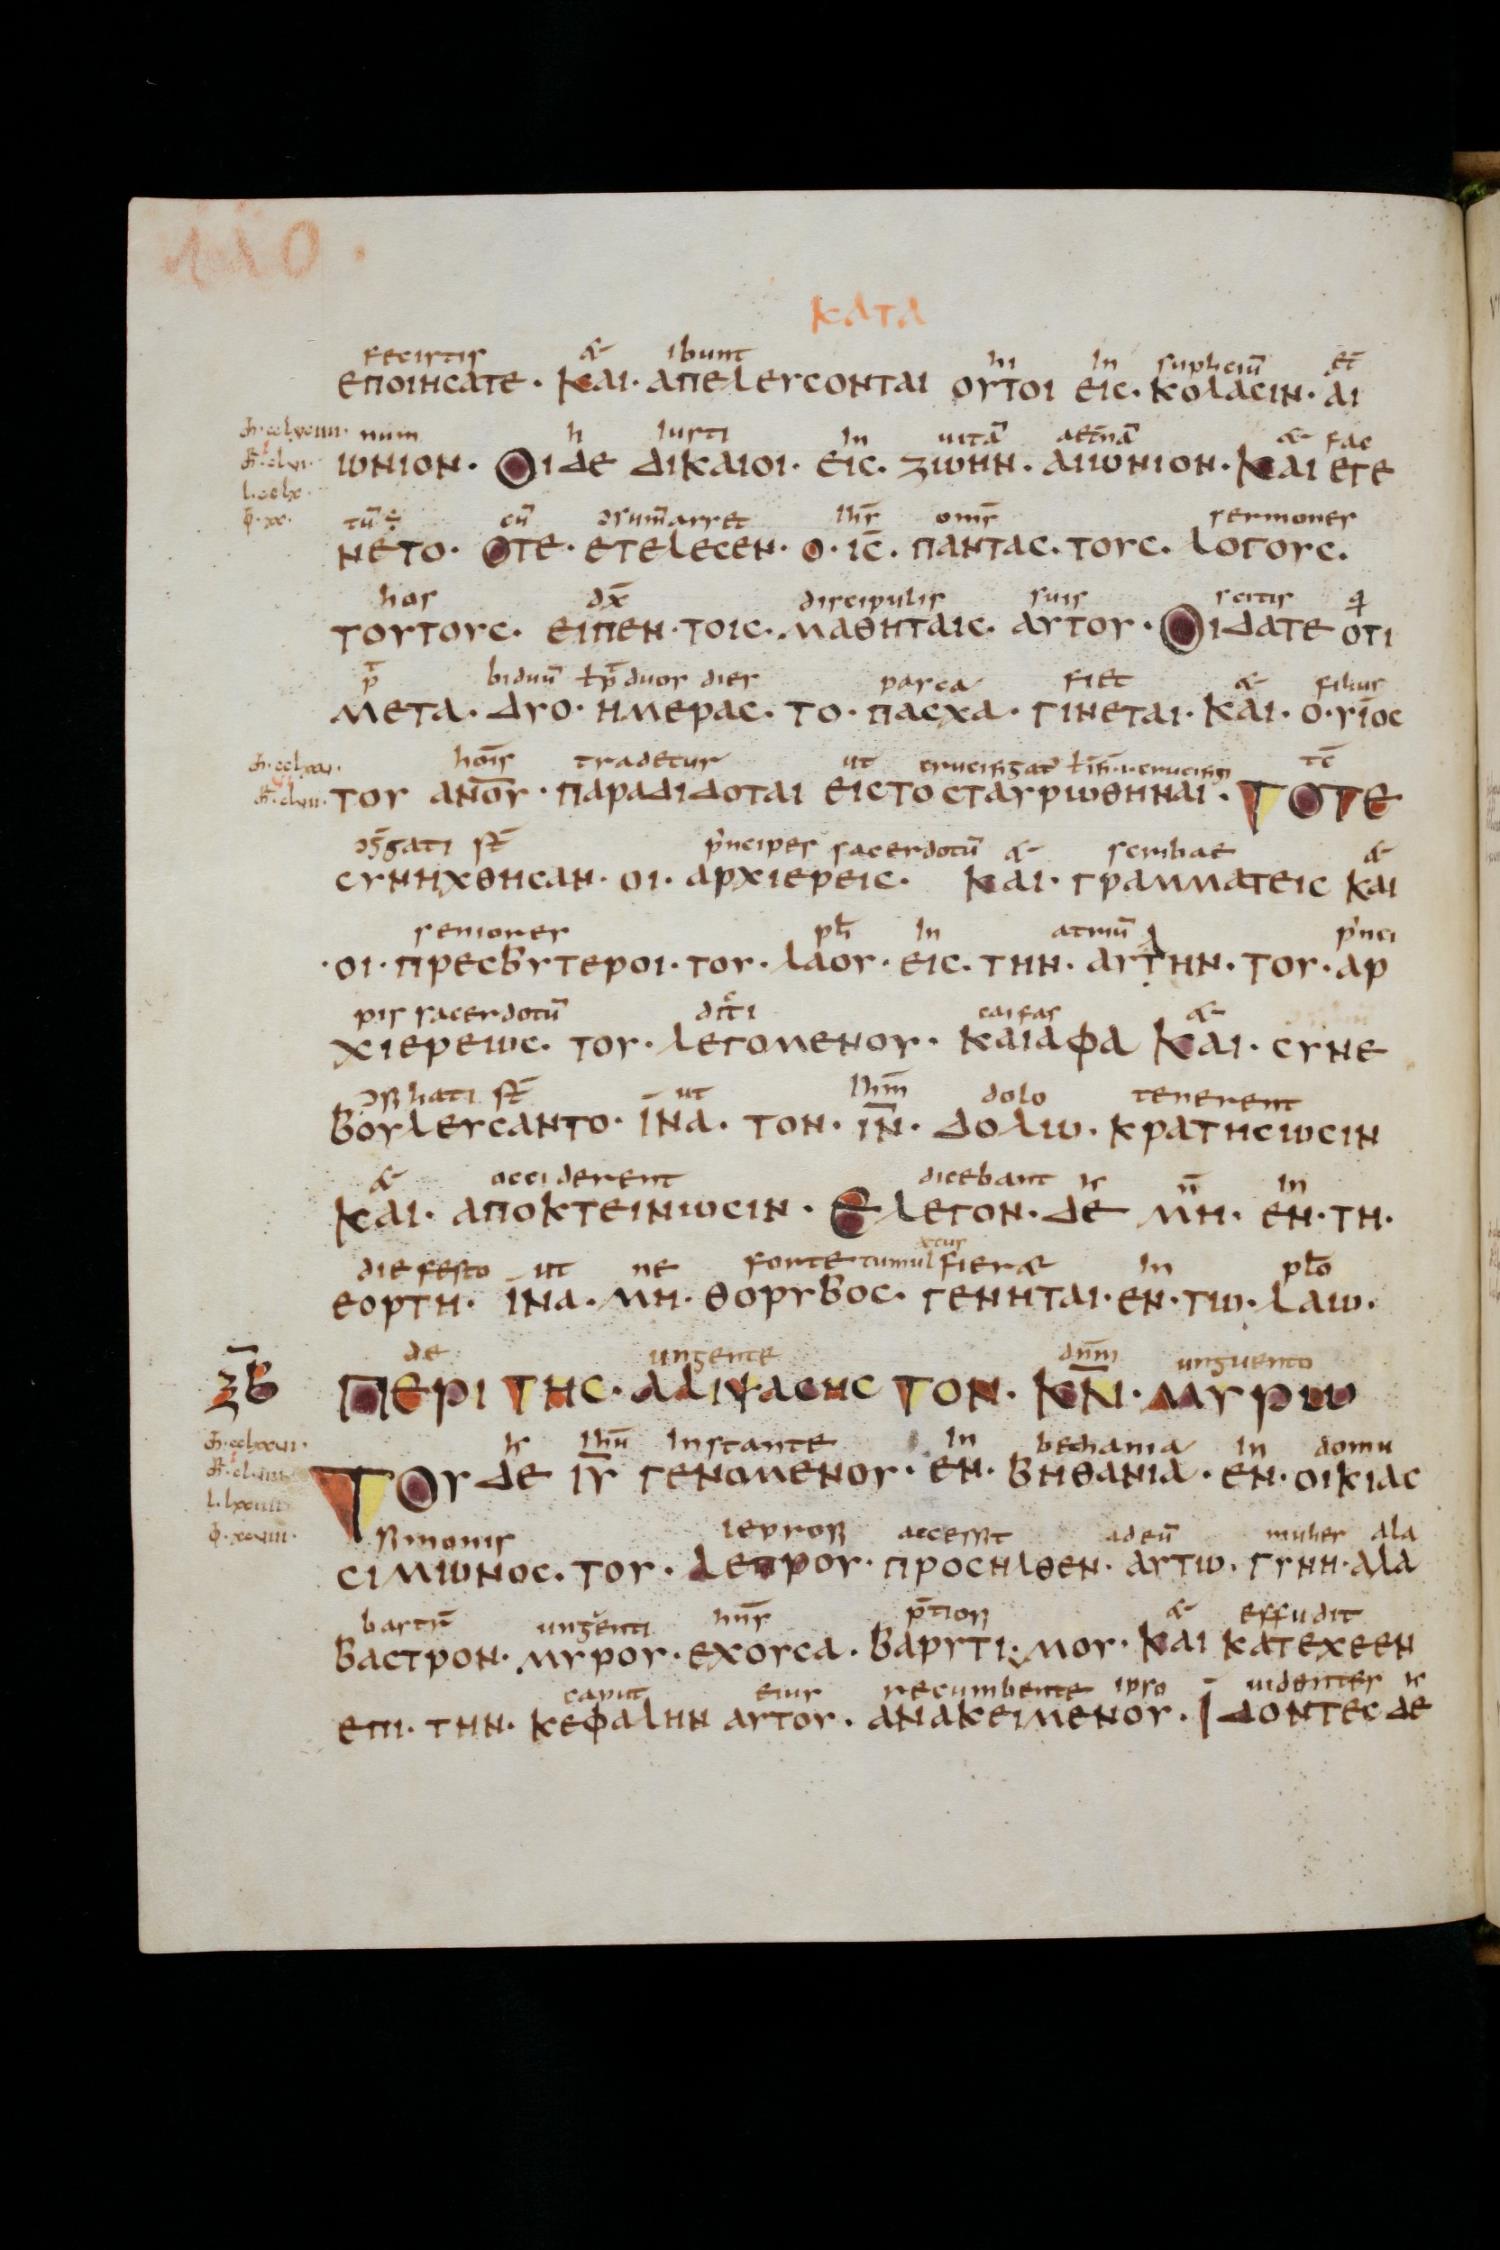 ΚΑΤΑ
fecistis & ibunt hi In supliciū et
ΕΠΟΙΗCΑΤΕ · ΚΑΙ · ΑΠΕΛΕΥCΟΝΤΑΙ ΟΥΤΟΙ ΕΙC · ΚΟΛΑCΙΝ · ΑΙ
num h Iusti In uitā aet̄nā & fac
ΩΝΙΟΝ · ΟΙ ΔΕ ΔΙΚΑΙΟΙ · ΕΙC · ΖΩΗΝ · ΑΙΩΝΙΟΝ · ΚΑΙ ΕΓΕ
tū ÷ cū ɔsum̄asset Ihs̄ oms̄ sermones
ΝΕΤΟ · ΟΤΕ · ΕΤΕΛΕCΕΝ · Ο · ΙC̄ · ΠΑΝΤΑC · ΤΟΥC · ΛΟΓΟΥC ·
hos dx̄ discipulis suis scitis
ΤΟΥΤΟΥC · ΕΙΠΕΝ · ΤΟΙC · ΜΑΘΗΤΑΙC · ΑΥΤΟΥ · ΟΙΔΑΤΕ ΟΤΙ
p̄ biduū ł p̄ duos dies pasca fiet & filius
ΜΕΤΑ · ΔΥΟ · ΗΜΕΡΑC · ΤΟ · ΠΑCΧΑ · ΓΙΝΕΤΑΙ · ΚΑΙ · Ο · ΥΙΟC
hoīs tradetur ut tc̄
ΤΟΥ ΑΝΟῩ · ΠΑΡΑΔΙΔΟΤΑΙ ΕΙC ΤΟ CΤΑΥΡΩΘΗΝΑΙ · ΤΟΤΕ
ɔḡgati st̄ pncipes sacerdotū & scribae &
CΥΝΗΧΘΗCΑΝ · ΟΙ · ΑΡΧΙΕΡΕΙC · ΚΑΙ · ΓΡΑΜΜΑΤΕΙC ΚΑΙ
seniores płi In atriū pnci
· ΟΙ · ΠΡΕCΒΥΤΕΡΟΙ · ΤΟΥ · ΛΑΟΥ · ΕΙC · ΤΗΝ · ΑΥΤΗΝ · ΤΟΥ · ΑΡ
pis sacerdotū caifas &
ΧΙΕΡΕΩC · ΤΟΥ · ΛΕΓΟΜΕΝΟΥ · ΚΑΙΑΦΑ ΚΑΙ · CΥΝΕ
st̄ ut Ihm̄ dolo tenerent
ΒΟΥΛΕΥCΑΝΤΟ · ΙΝΑ · ΤΟΝ · ΙΝ̄ · ΔΟΛΩ · ΚΡΑΤΗCΩCΙΝ
& occiderent dicebant n̄ in
ΚΑΙ · ΑΠΟΚΤΕΙΝΩCΙΝ · ΕΛΕΓΟΝ · ΔΕ ΜΗ · ΕΝ · ΤΗ ·
die festo ut ne forte tumul fier& In pło
ΕΟΡΤΗ · ΙΝΑ · ΜΗ · ΘΟΡΥΒΟC · ΓΕΝΗΤΑΙ · ΕΝ · ΤΩ · ΛΑΩ ·
de ungente dnm̄ unguento
Ξ̄Β ΠΕΡΙ ΤΗC · ΑΛΙΨΑCΗC ΤΟΝ · ΚΝ̄ · ΜΥΡΩ
Ihū Instante In bethania In domu
ΤΟΥ ΔΕ ΙῩ ΓΕΝΟΜΕΝΟΥ · ΕΝ · ΒΗΘΑΝΙΑ · ΕΝ · ΟΙΚΙΑC
Simonis accessit ad eū mulier ala
CΙΜΩΝΟC · ΤΟΥ · ΛΕΠΡΟΥ · ΠΡΟCΗΛΘΕΝ · ΑΥΤΩ · ΓΥΝΗ · ΑΛΑ
bastr̄ ungenti & effudit
ΒΑCΤΡΟΝ · ΜΥΡΟΥ · ΕΧΟΥCΑ · ΒΑΡΥΤΙ · ΜΟΥ · ΚΑΙ ΚΑΤΕΧΕΕΝ
caput eius recumbente ipso uidentes
ΕΠΙ · ΤΗΝ · ΚΕΦΑΛΗΝ ΑΥΤΟΥ · ΑΝΑΚΕΙΜΕΝΟΥ · ΙΔΟΝΤΕC ΔΕ